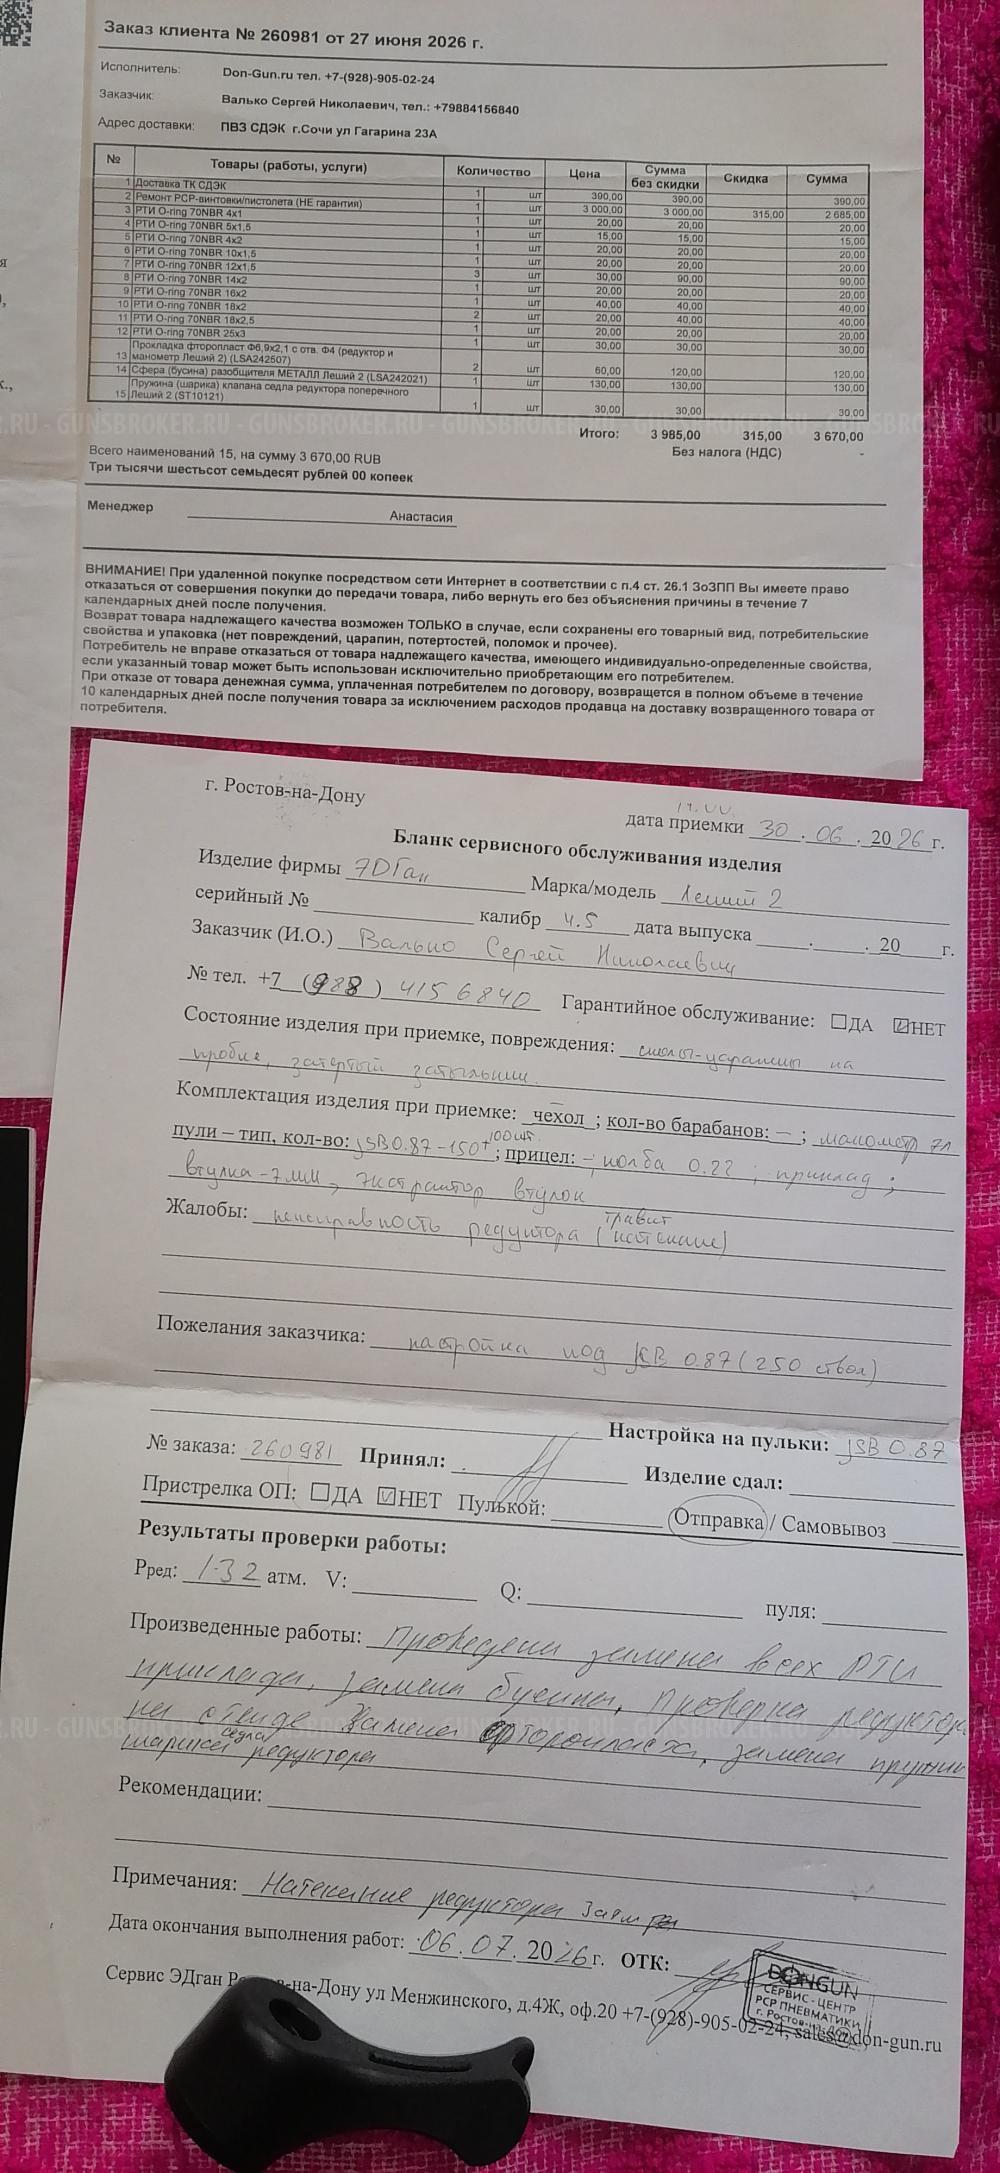 Заказ клиента № 260981 от 27 июня 2026 г.
Исполнитель: Don-Gun.ru тел. +7-(928)-905-02-24
Заказчик: Валько Сергей Николаевич, тел.: +79884156840
Адрес доставки: ПВЗ СДЭК г.Сочи ул Гагарина 23А
№ Товары (работы, услуги) Количество Цена Сумма без скидки Скидка Сумма
1 Доставка ТК СДЭК 1 шт 390,00 390,00 390,00
2 Ремонт PCP-винтовки/пистолета (НЕ гарантия) 1 шт 3 000,00 3 000,00 315,00 2 685,00
3 РТИ O-ring 70NBR 4x1 1 шт 20,00 20,00 20,00
4 РТИ O-ring 70NBR 5x1,5 1 шт 15,00 15,00 15,00
5 РТИ O-ring 70NBR 4x2 1 шт 20,00 20,00 20,00
6 РТИ O-ring 70NBR 10x1,5 1 шт 20,00 20,00 20,00
7 РТИ O-ring 70NBR 12x1,5 3 шт 30,00 90,00 90,00
8 РТИ O-ring 70NBR 14x2 1 шт 20,00 20,00 20,00
9 РТИ O-ring 70NBR 16x2 1 шт 40,00 40,00 40,00
10 РТИ O-ring 70NBR 18x2 2 шт 20,00 40,00 40,00
11 РТИ O-ring 70NBR 18x2,5 1 шт 20,00 20,00 20,00
12 РТИ O-ring 70NBR 25x3 1 шт 30,00 30,00 30,00
Прокладка фторопласт Ф6,9x2,1 с отв. Ф4 (редуктор и
13 манометр Леший 2) (LSA242507) 2 шт 60,00 120,00 120,00
14 Сфера (бусина) разобщителя МЕТАЛЛ Леший 2 (LSA242021) 1 шт 130,00 130,00 130,00
Пружина (шарика) клапана седла редуктора поперечного
15 Леший 2 (ST10121) 1 шт 30,00 30,00 30,00
Итого: 3 985,00 315,00 3 670,00
Без налога (НДС) -
Всего наименований 15, на сумму 3 670,00 RUB
Три тысячи шестьсот семьдесят рублей 00 копеек
Менеджер Анастасия
ВНИМАНИЕ! При удаленной покупке посредством сети Интернет в соответствии с п.4 ст. 26.1 ЗоЗПП Вы имеете право
отказаться от совершения покупки до передачи товара, либо вернуть его без объяснения причины в течение 7
календарных дней после получения.
Возврат товара надлежащего качества возможен ТОЛЬКО в случае, если сохранены его товарный вид, потребительские
свойства и упаковка (нет повреждений, царапин, потертостей, поломок и прочее).
Потребитель не вправе отказаться от товара надлежащего качества, имеющего индивидуально-определенные свойства,
если указанный товар может быть использован исключительно приобретающим его потребителем.
При отказе от товара денежная сумма, уплаченная потребителем по договору, возвращается в полном объеме в течение
10 календарных дней после получения товара за исключением расходов продавца на доставку возвращенного товара от
потребителя.
г. Ростов-на-Дону
дата приемки 30.06.2026 г.
Бланк сервисного обслуживания изделия
Изделие фирмы ЭДГан Марка/модель Леший 2
серийный № калибр 4.5 дата выпуска . . 20 г.
Заказчик (И.О.) Валько Сергей Николаевич
№ тел. +7 (988) 4156840 Гарантийное обслуживание: ДА НЕТ
Состояние изделия при приемке, повреждения: сколы-царапины на
пробке, затертый затыльник.
Комплектация изделия при приемке: чехол; кол-во барабанов: –; манометр
пули – тип, кол-во: JSB 0.87-150+100шт.; прицел: –; колба 0.22; приклад;
втулка-7мм, экстрактор втулок
Жалобы: неисправность редуктора (травит натекание)
Пожелания заказчика: настройка под JSB 0.87 (250 ствол)
Настройка на пульки: JSB 0.87
№ заказа: 260981 Принял: Изделие сдал:
Пристрелка ОП: ДА НЕТ Пулькой: Отправка / Самовывоз
Результаты проверки работы:
Рред: 132 атм. V: Q: пуля:
Произведенные работы: Проведена замена всех РТИ
приклада, замена бусины, Проверка редуктора
на стенде Замена фторопласта, замена пружины
шарика седла редуктора
Рекомендации:
Примечания: Натекание редуктора
Дата окончания выполнения работ: 06.07.2026 г. ОТК:
DONGUN
СЕРВИС-ЦЕНТР
PCP ПНЕВМАТИКИ
г. Ростов-на-Дону
Сервис ЭДган -на-Дону ул Менжинского, д.4Ж, оф.20 +7-(928)-905-02-24, sales@don-gun.ru
GUNSBROKER.RU - GUNSBROKER.RU - GUNSBROKER.RU - GUNSBROKER.RU
GUNSBROKER.RU - GUNSBROKER.RU - GUNSBROKER.RU - GUNSBROKER.RU